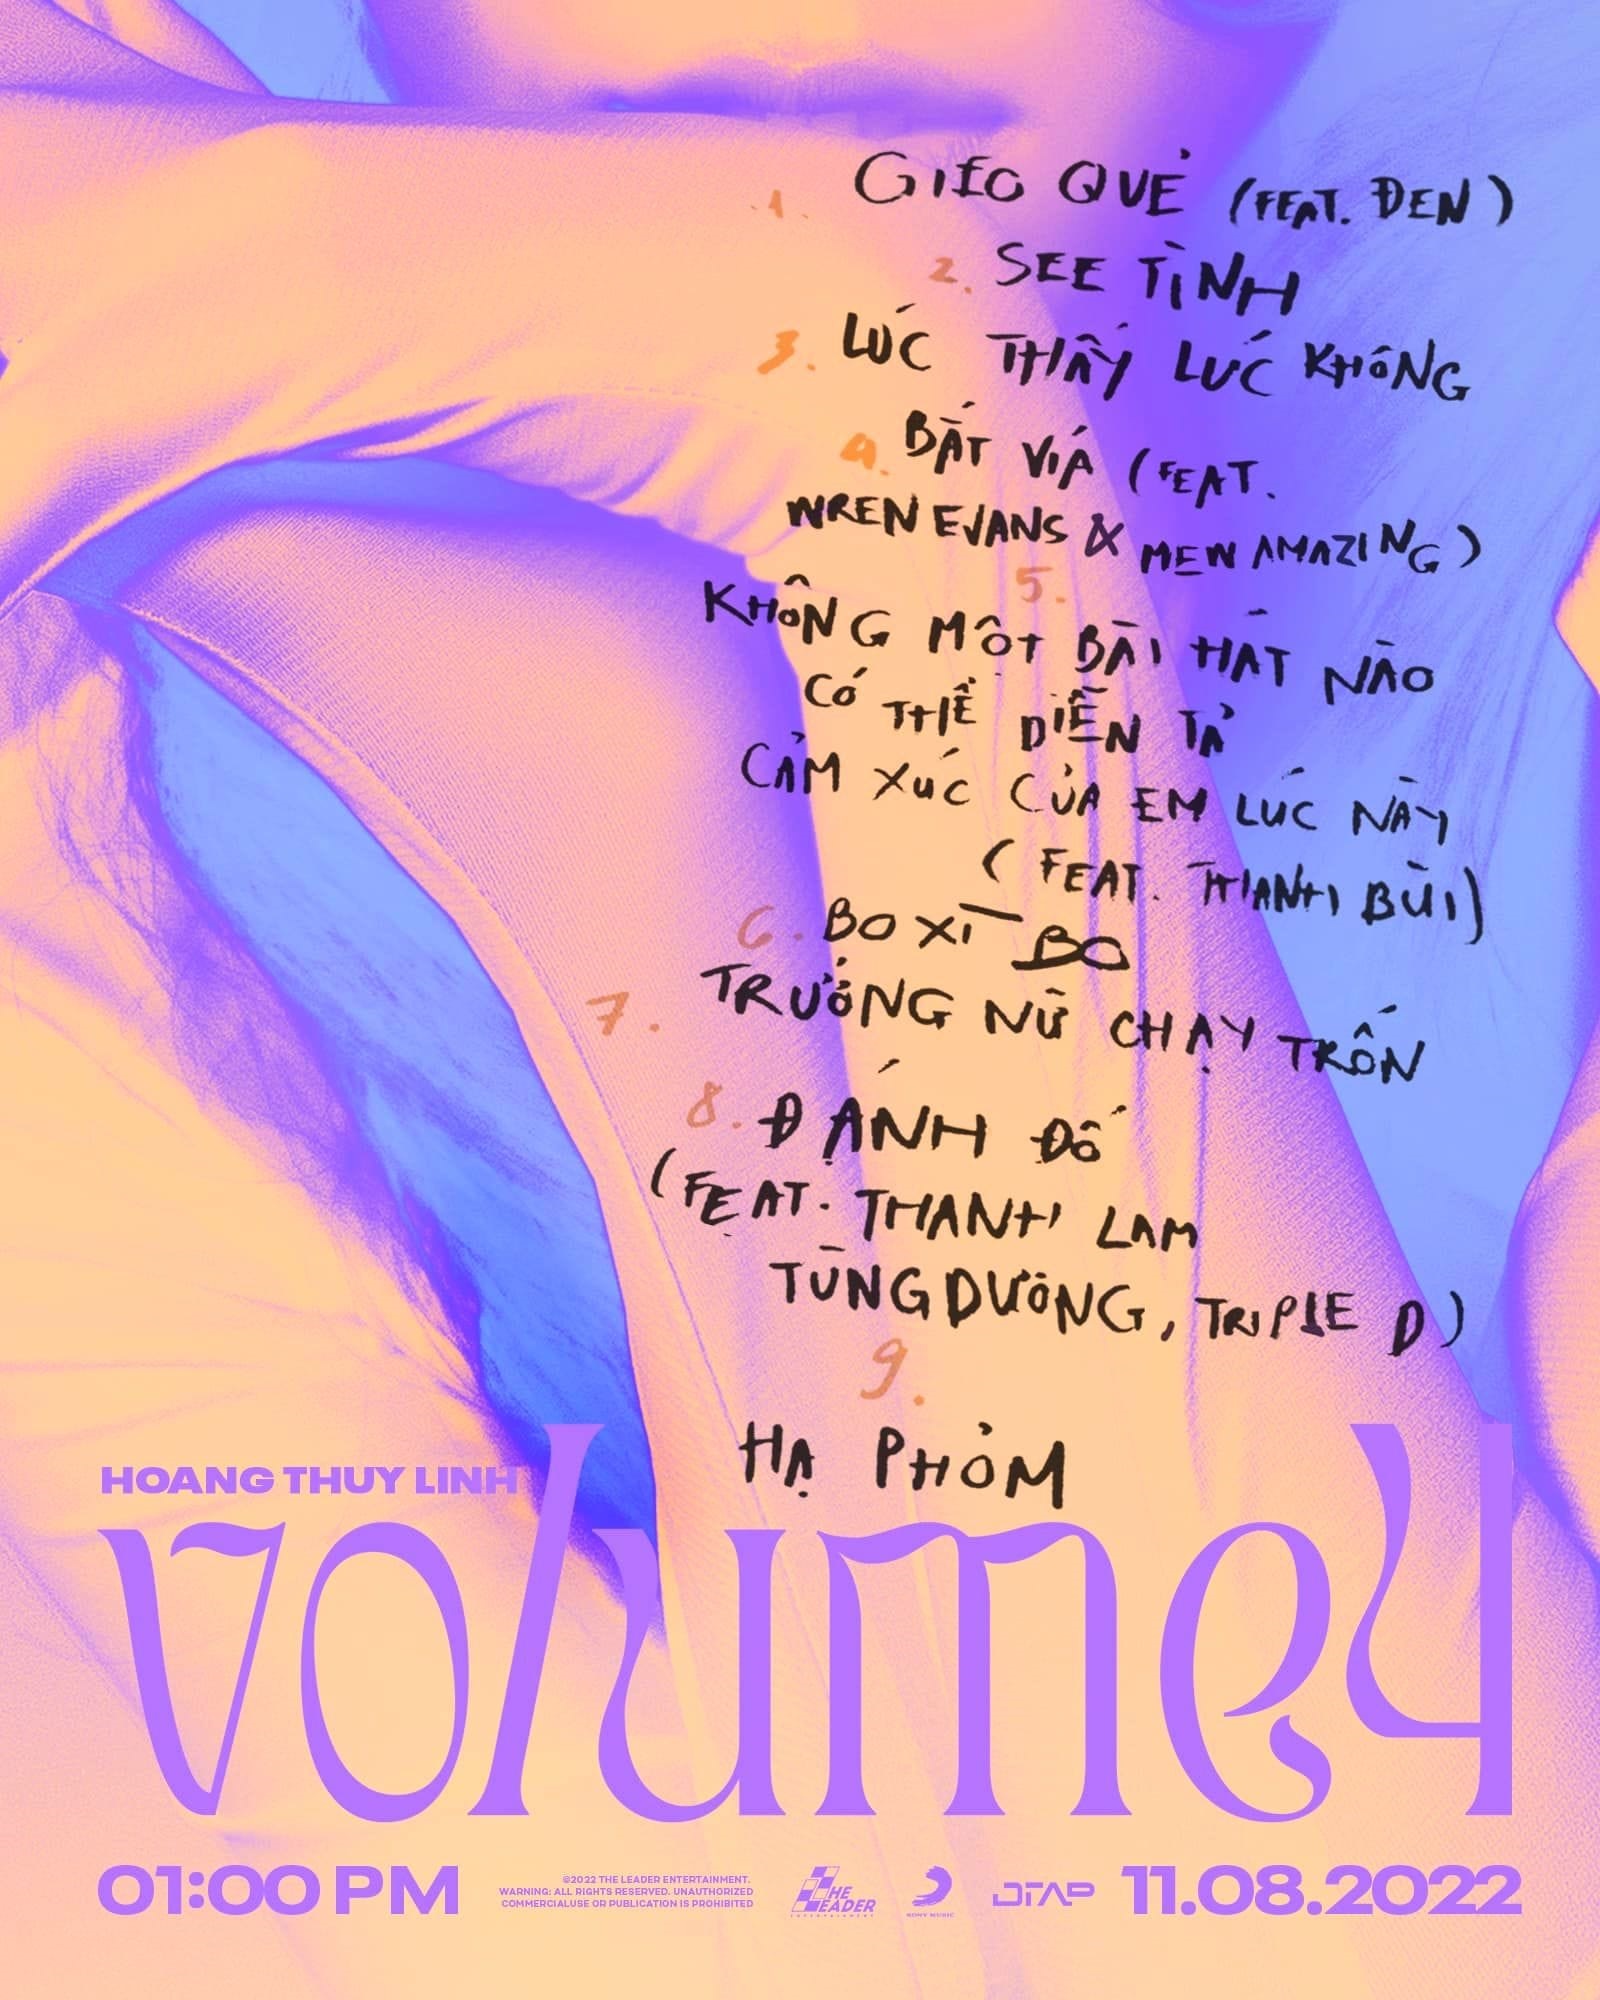 1. GIEO QUẺ (FEAT. ĐEN)
2. SEE TÌNH
3. LÚC THẤY LÚC KHÔNG
4. BẮT VÍA (FEAT.
WREN EVANS & MEW AMAZING)
5.
KHÔNG MỘT BÀI HÁT NÀO
CÓ THỂ DIỄN TẢ
CẢM XÚC CỦA EM LÚC NÀY
(FEAT. THANH BÙI)
6. BO XÌ BO
7. TRƯỞNG NỮ CHẠY TRỐN
8. ĐÁNH ĐỐ
(FEAT. THANH LAM
TÙNG DƯƠNG, TRIPLE D)
9.
HẠ PHỎM
HOANG THUY LINH
volume4
01:00 PM
©2022 THE LEADER ENTERTAINMENT.
WARNING: ALL RIGHTS RESERVED. UNAUTHORIZED
COMMERCIALUSE OR PUBLICATION IS PROHIBITED
THE
LEADER
ENTERTAINMENT
SONY MUSIC
DTAP
11.08.2022